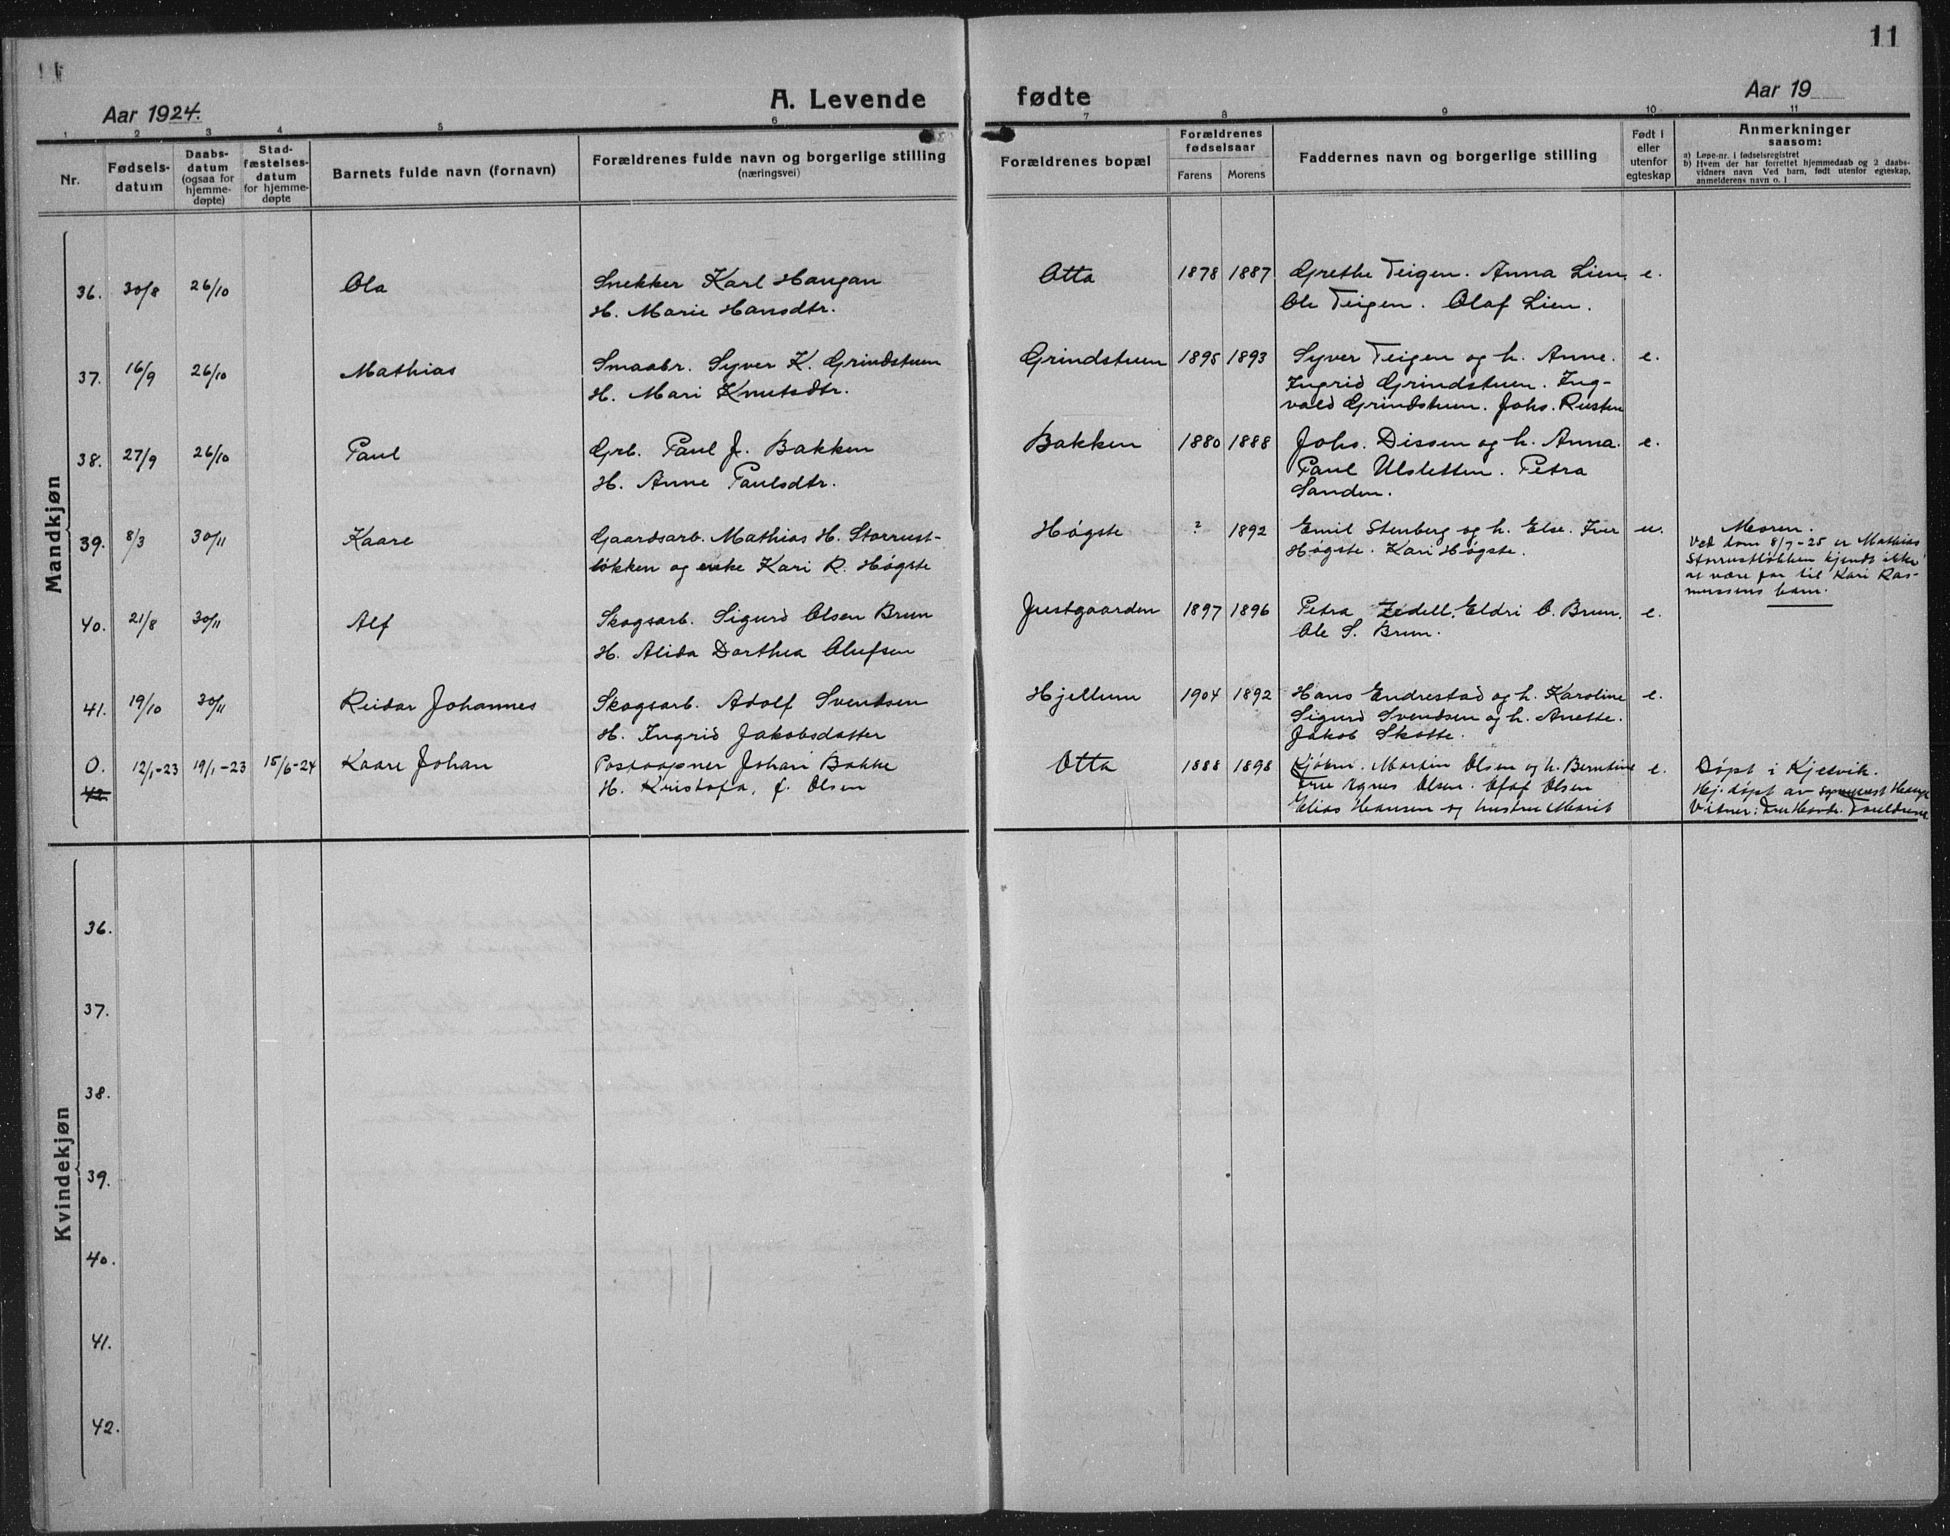 11
Aar 1924.
A. Levende fødte
Aar 19
1 2 3 4 5 6 7 8 9 10 11
Nr.
Fødsels-
datum
Daabs-
datum
(ogsaa for
hjemme-
døpte)
Stad-
fæstelses-
datum
for hjemme-
døpte
Barnets fulde navn (fornavn)
Forældrenes fulde navn og borgerlige stilling
(næringsvei)
Forældrenes bopæl
Forældrenes
fødselsaar
Farens Morens
Faddernes navn og borgerlige stilling
Født i
eller
utenfor
egteskap
Anmerkninger
saasom:
a) Løpe-nr. i fødselsregistret
b) Hvem der har forrettet hjemmedaab og 2 daabs-
vidners navn Ved barn, født utenfor egteskap,
anmelderens navn o. l
Mandkjøn
36. 30/8 26/10 Ola Snekker Karl Haugan Otta 1878 1887 Grethe Teigen. Anna Lien, e.
H. Marie Hansdtr. Ole Teigen. Olaf Lien.
37. 16/9 26/10 Mathias Smaabr. Syver K. Grindstuen Grindstuen 1895 1893 Syver Teigen og h. Anne. e.
H. Mari Knutsdtr. Ingrid Grindstuen. Ing-
vald Grindstuen. Johs. Rusten
38. 27/9 26/10 Paul Grb. Paul J. Bakken Bakken 1880 1888 Johs. Dissen og h. Anna. e.
H. Anne Paulsdtr. Paul Ulsletten. Petra
Sanden.
39. 8/3 30/11 Kaare Gaardsarb. Mathias H. Storrust- Høgste ? 1892 Emil Stenberg og h. Else. Iver u. Moren.
løkken og enke Kari R. Høgste Høgste. Kari Høgste. Ved dom 8/7-25 er Mathias
Storrustløkken kjendt ikke
at være far til Kari Ras-
mussens barn.
40. 21/8 30/11 Alf Skogsarb. Sigurd Olsen Brun Justgaarden 1897 1896 Petra Zedell. Eldri O. Brun. e.
H. Alida Dorthea Olufsen Ole S. Brun.
41. 19/10 30/11 Reidar Johannes Skogsarb. Adolf Svendsen Hjellum 1904 1892 Hans Endrestad og h. Karoline e.
H. Ingrid Jakobsdatter Sigurd Svendsen og h. Anette.
Jakob Skotte.
0. 12/1-23 19/1-23 15/6-24 Kaare Johan Postaapner Johan Bakke Otta 1888 1898 Kjøbm. Martin Olsen og h. Berntine e. Døpt i Kjelvik.
42. H. Kristofa, f. Olsen Fru Agnes Olsen. Olaf Olsen Hj. døpt av
Elias Hansen og hustru Marit Vitner: Fru Forældrene
Kvindekjøn
36.
37.
38.
39.
40.
41.
42.